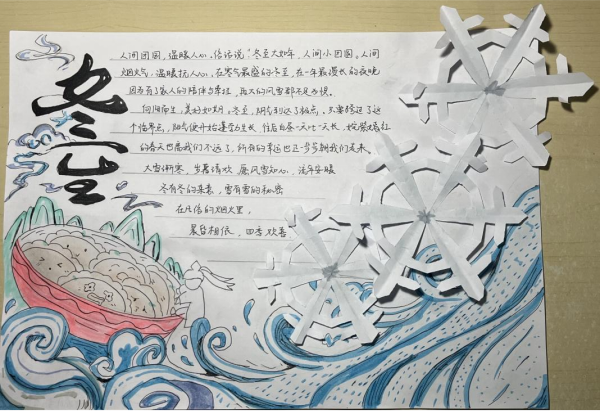 冬至
人间团圆，温暖人心，俗话说："冬至大如年，人间小团圆。人间
烟火气，温暖抚人心，在寒气最盛的冬至，在一年最漫长的夜晚
因为有了家人的陪伴与牵挂，再大的风雪都不足为惧。
向阳而生，美好如期。冬至，阴气到达了极点，只要跨过了这
个临界点，阳气便开始蓬勃生长，往后白昼一天比一天长，姹紫嫣红
的春天也离我们不远了，所有的幸运也正一步步朝我们走来。
大雪研寒，岁暮清欢，愿风雪知心，流年安暖
冬有冬的来意，雪有雪的秘密
在凡俗的烟火里，
晨昏相依，四季欢喜